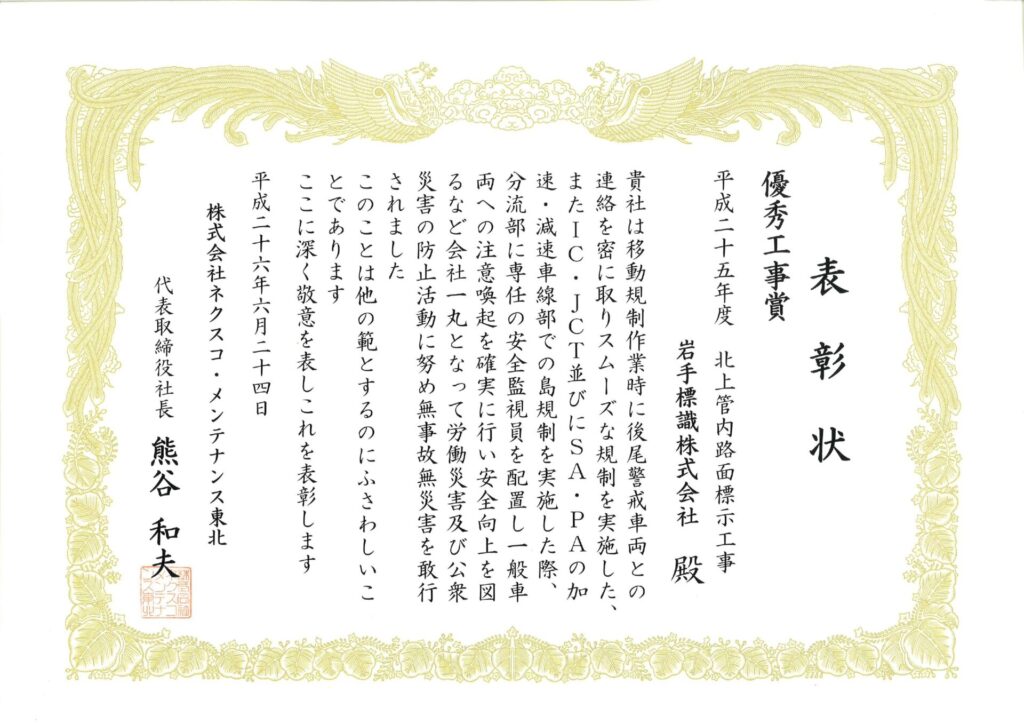 表彰状
優秀工事賞
平成二十五年度　北上管内路面標示工事
岩手標識株式会社　殿
貴社は移動規制作業時に後尾警戒車両との
連絡を密に取りスムーズな規制を実施した、
またＩＣ・ＪＣＴ並びにＳＡ・ＰＡの加
速・減速車線部での島規制を実施した際、
分流部に専任の安全監視員を配置し一般車
両への注意喚起を確実に行い安全向上を図
るなど会社一丸となって労働災害及び公衆
災害の防止活動に努め無事故無災害を敢行
されました
このことは他の範とするのにふさわしいこ
とであります
ここに深く敬意を表しこれを表彰します
平成二十六年六月二十四日
株式会社ネクスコ・メンテナンス東北
代表取締役社長　熊谷　和夫